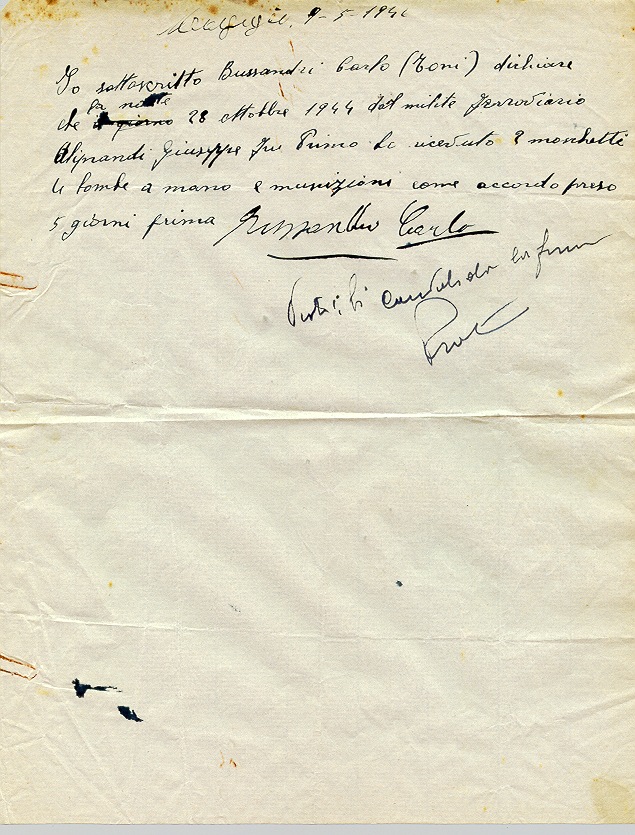 9-5-1946
Io sottoscritto Bussandri Carlo (Toni) dichiare
la notte
che il giorno 28 ottobre 1944 dal milite ferroviario
Alinandi Giuseppe fu Primo ho ricevuto 2 moschetti
4 bombe a mano e munizioni come accordo preso
5 giorni prima Bussandri Carlo
la firma